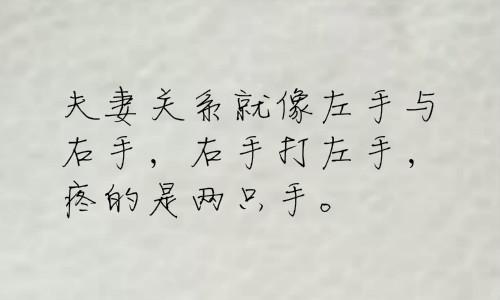 夫妻关系就像左手与
右手，右手打左手，
疼的是两只手。